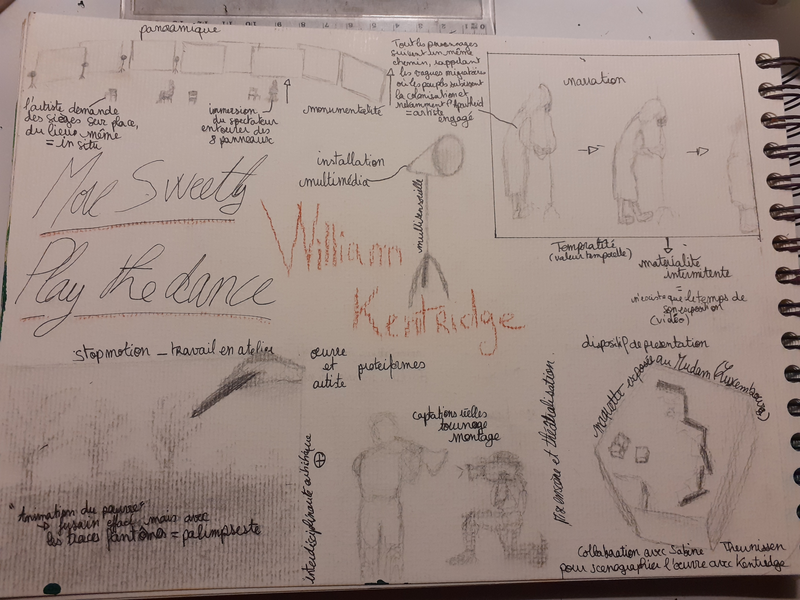 panoramique
l'artiste demande
des sièges sur place,
du lieu même
= in situ
immersion
du spectateur
entourer des
8 panneaux
monumentalité
Tout les personnages
suivent un même
chemin, rappelant
les vagues migratoires
où les peuples subissent
la colonisation et
notamment l'Apartheid
= artiste
engagé
narration
More Sweetly
Play the dance
installation
multimédia
multisensorielle
William
Kentridge
Temporalité
(valeur temporelle)
matérialité
intermitente
=
n'existe que le temps de
son exposition
(vidéo)
stopmotion _ travail en atelier
œuvre
et
artiste
protéiformes
"Animation du pauvre"
fusain effacé mais avec
les traces fantômes = palimpseste
interdisciplinarité artistique
captations réelles
tournage
montage
mise en scène et théâtralisation
dispositif de présentation
maquette exposée au Mudam (Luxembourg)
Collaboration avec Sabine Theunissen
pour scenographier l'œuvre avec Kentridge